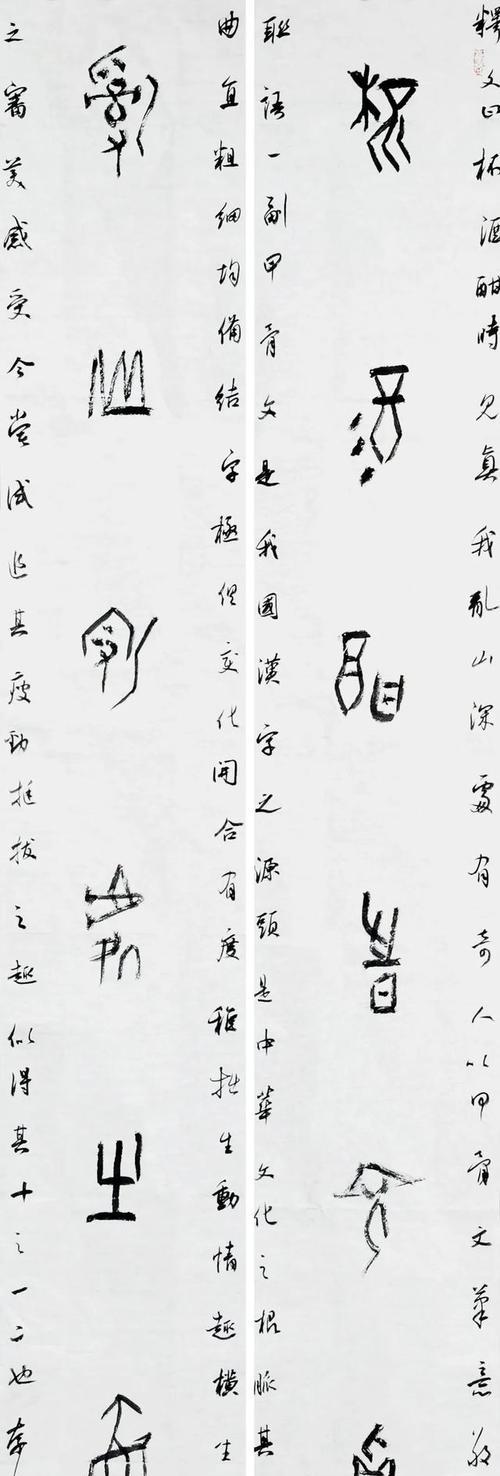 釋文曰杯酒酣時見真我亂山深處有奇人以甲骨文筆意
杯酒酣時見
聯語一副甲骨文是我國漢字之源頭是中華文化之根脈其
曲直粗細均備結字極變化開合有度稚拙生動情趣橫生
亂山深處有
之審美感受今嘗試追其瘦勁挺拔之趣似得其十之一二也